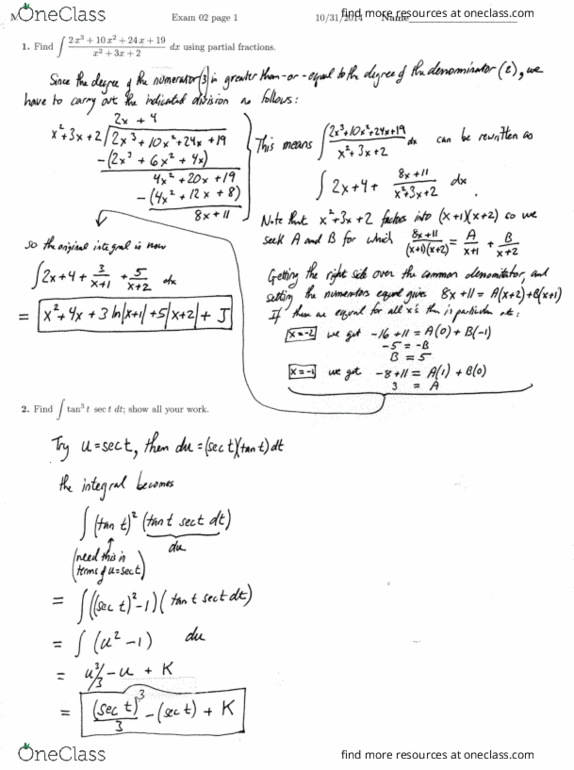 OneClass
find more resources at oneclass.com
M
Exam 02 page 1
10/31/2014
Name
1. Find ∫ (2x³ + 10x² + 24x + 19)/(x² + 3x + 2) dx using partial fractions.
Since the degree of the numerator (3) is greater-than-or-equal to the degree of the denominator (2), we
have to carry out the indicated division as follows:
2x + 4
x²+3x+2 ) 2x³ + 10x² + 24x + 19
-(2x³ + 6x² + 4x)
4x² + 20x + 19
-(4x² + 12x + 8)
8x + 11
This means ∫ (2x³+10x²+24x+19)/(x²+3x+2) dx can be rewritten as
∫ 2x+4+ (8x+11)/(x²+3x+2) dx.
Note that x²+3x+2 factors into (x+1)(x+2) so we
seek A and B for which (8x+11)/((x+1)(x+2)) = A/(x+1) + B/(x+2)
Getting the right side over the common denominator, and
setting the numerators equal gives 8x+11 = A(x+2)+B(x+1)
If these are equal for all x's then in particular at:
x=-2 we get -16+11 = A(0) + B(-1)
-5 = -B
B = 5
x=-1 we get -8+11 = A(1) + B(0)
3 = A
so the original integral is now
∫ 2x+4 + 3/(x+1) + 5/(x+2) dx
= x²+4x + 3 ln|x+1| +5|x+2| + J
2. Find ∫ tan³ t sec t dt; show all your work.
Try u = sec t, then du = (sec t)(tan t) dt
the integral becomes
∫ (tan t)² (tan t sec t dt)
du
(need this in
terms of u=sec t)
= ∫ ((sec t)²-1) (tan t sec t dt)
= ∫ (u²-1) du
= u³/3 - u + K
= (sec t)³/3 - (sec t) + K
OneClass
find more resources at oneclass.com